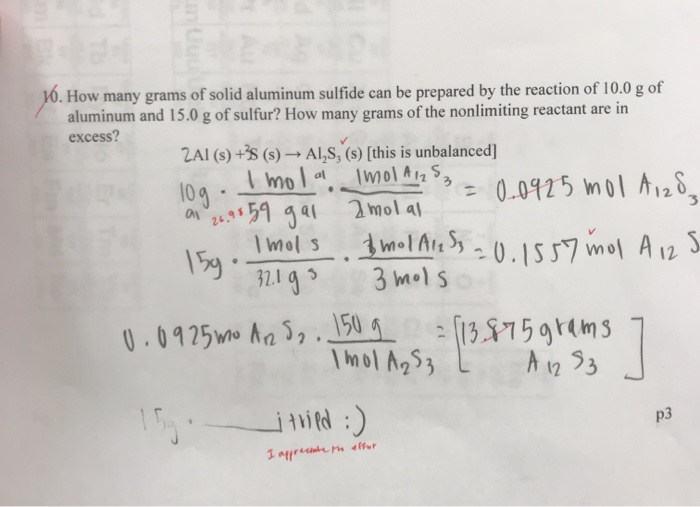 10. How many grams of solid aluminum sulfide can be prepared by the reaction of 10.0 g of
aluminum and 15.0 g of sulfur? How many grams of the nonlimiting reactant are in
excess?
2Al (s) + 3S (s) → Al₂S₃ (s) [this is unbalanced]
10g al · 1 mol al / 26.98 59 g al · 1 mol Al2 S3 / 2 mol al = 0.0925 mol Al2 S3
15g · 1 mol s / 32.1 g s · 1 mol Al2 S3 / 3 mol s = 0.1557 mol Al2 S
0.0925 mo Al2 S3 · 150 g / 1 mol A2S3 = [13.875 grams Al2 S3]
15g · i tried :)
I appreciate the effort
p3